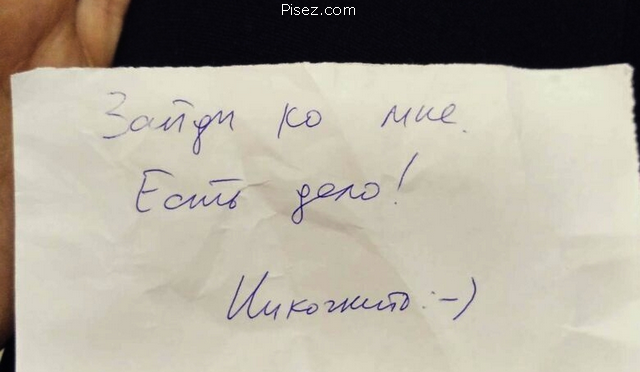 Pisez.com
Зайди ко мне.
Есть дело!
Инкогнито :-)